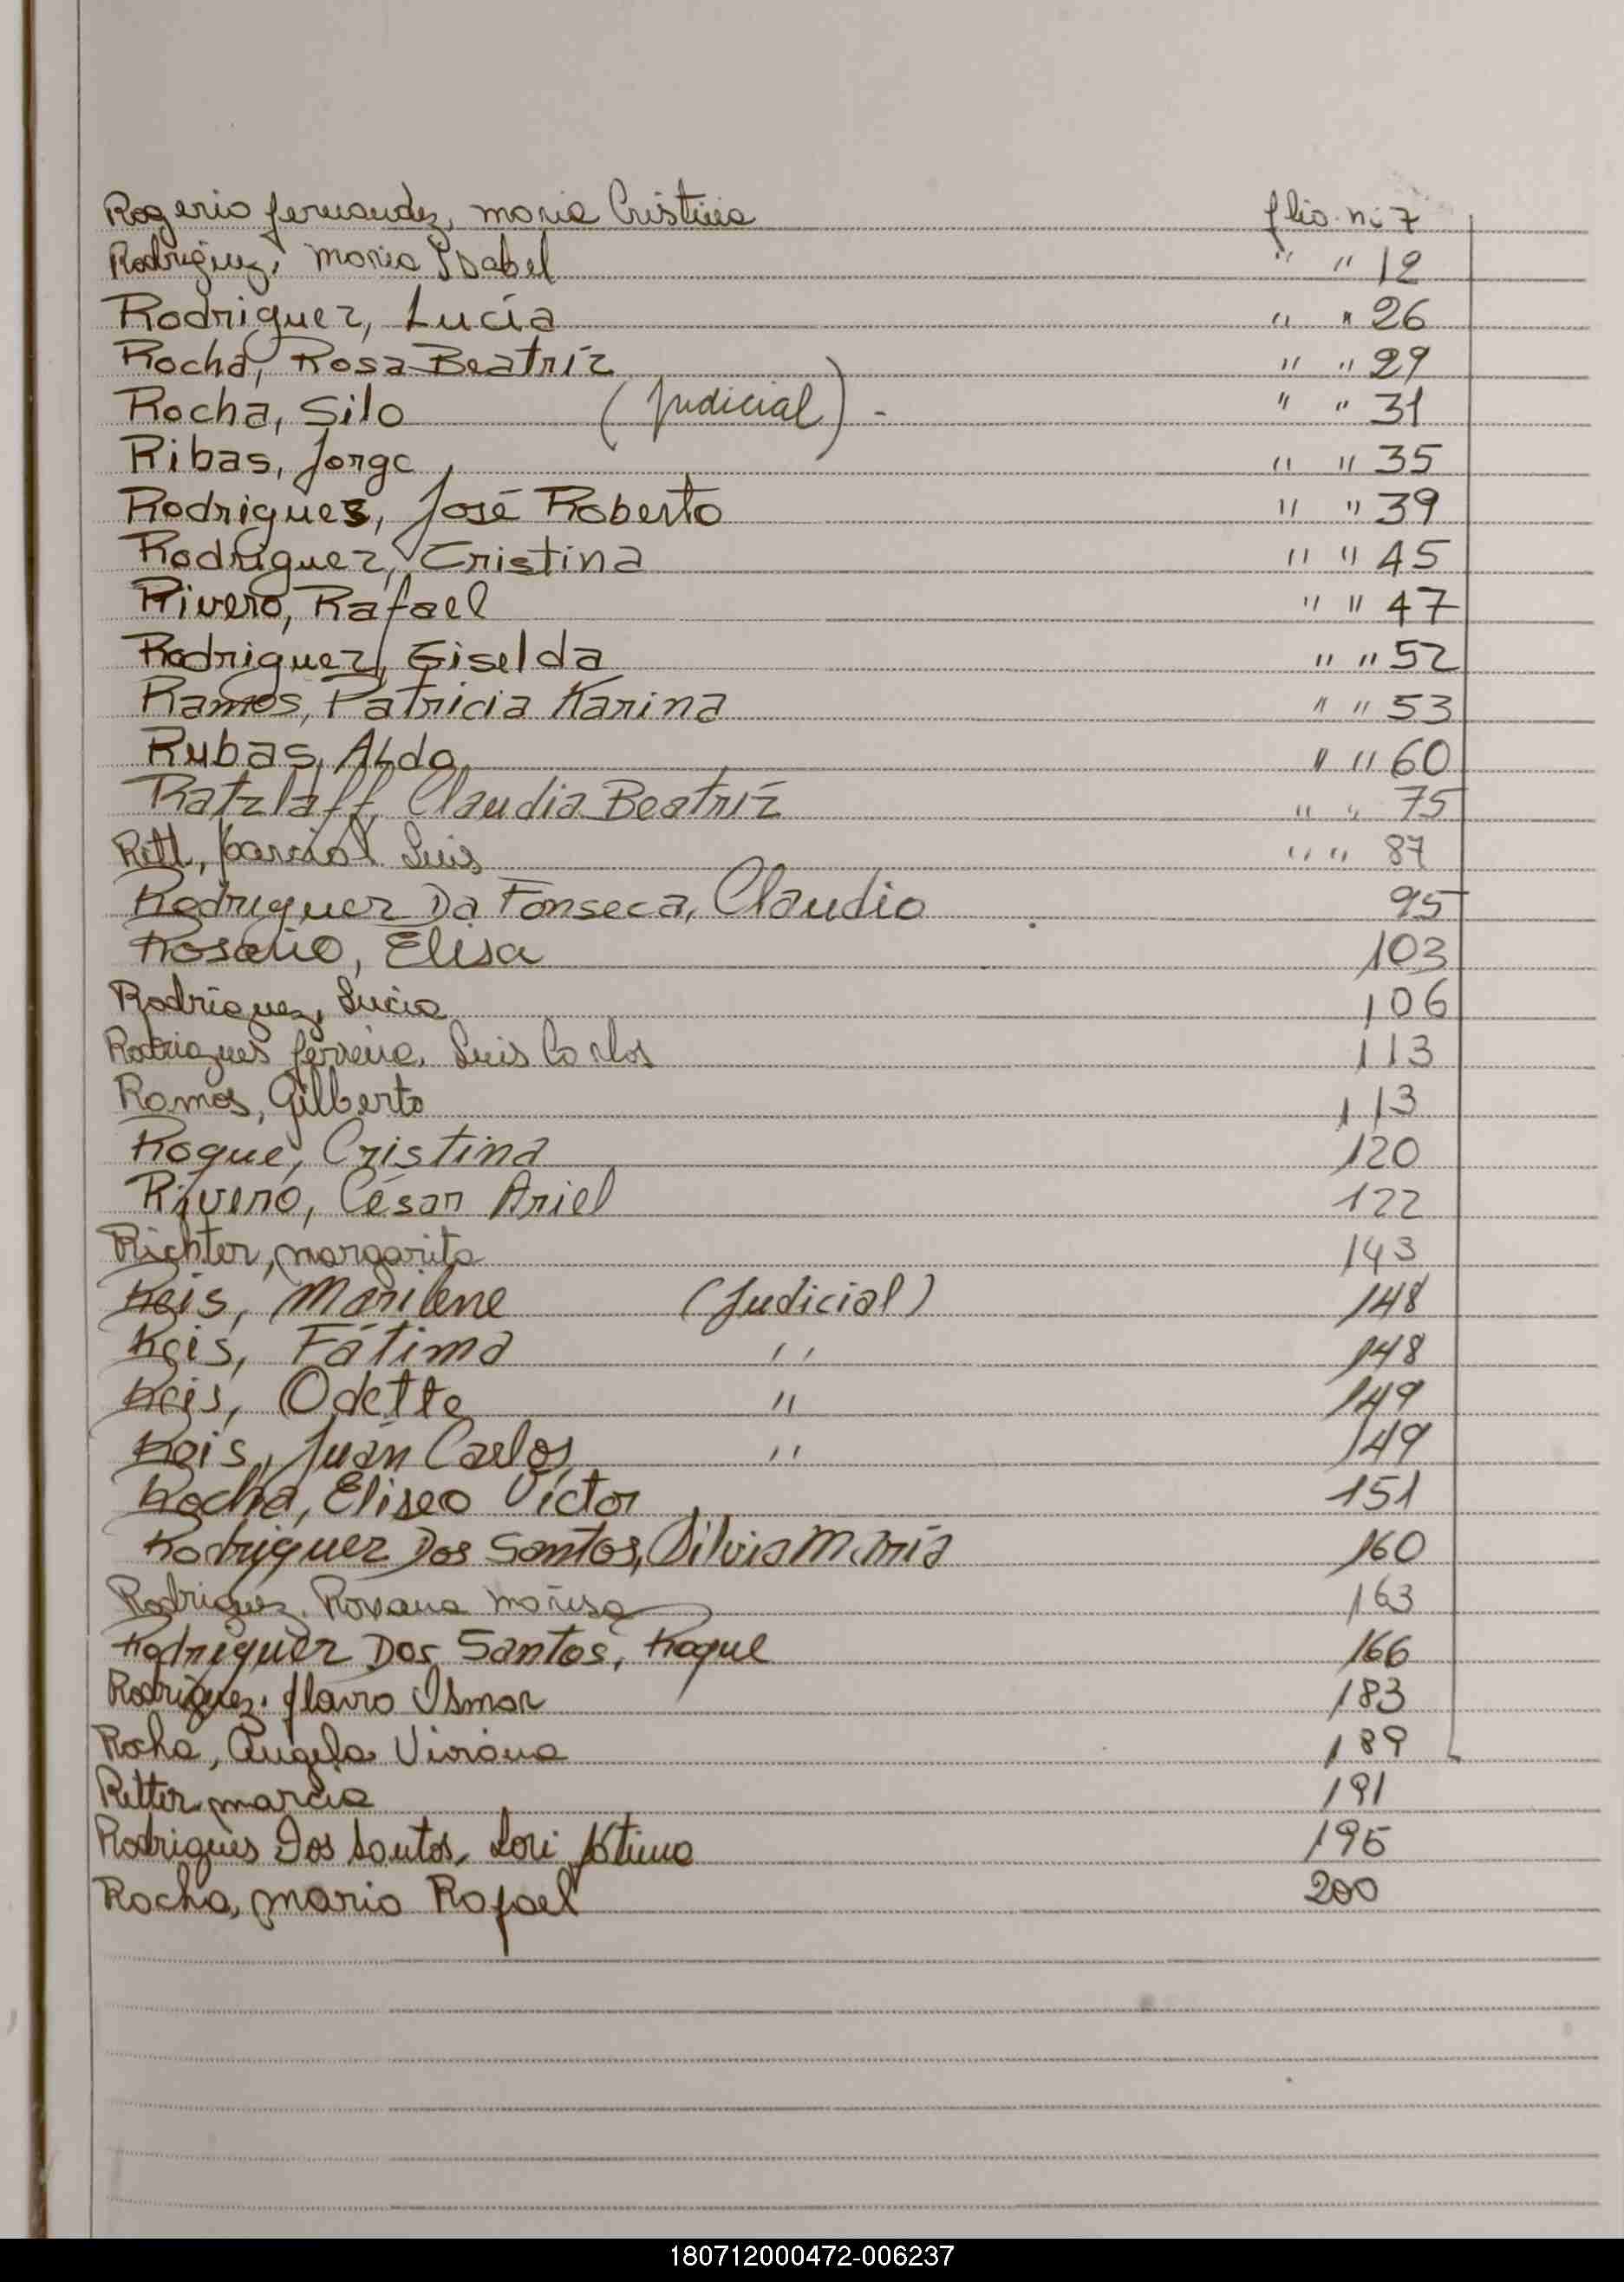 Rogerio fernandez, maria Cristina flio. nº 7
Rodriguez, Maria Ysabel " " 12
Rodriguez, Lucía " " 26
Rocha, Rosa Beatríz " " 29
Rocha, Silo (Judicial) - " " 31
Ribas, Jorge " " 35
Rodrigues, José Roberto " " 39
Rodriguez, Cristina " " 45
Rivero, Rafael " " 47
Rodriguez, Giselda " " 52
Ramos, Patricia Karina " " 53
Rubas, Aldo " " 60
Ratzlaff, Claudia Beatríz " " 75
Ritt, Marcial Luis " " 87
Rodriguez Da Fonseca, Claudio 95
Rosario, Elisa 103
Rodriguez, Lucia 106
Rodrigues ferreira, Luis Carlos 113
Ramos, Gilberto 113
Roque, Cristina 120
Rivero, César Ariel 122
Richter, margarita 143
Reis, Marilene (Judicial) 148
Reis, Fátima " 148
Reis, Odette " 149
Reis, Juan Carlos " 149
Rocha, Eliseo Víctor 151
Rodriguez Dos Santos, Silvia María 160
Rodriguez, Roxana Marisa 163
Rodriguez Dos Santos, Roque 166
Rodriguez, flavio Ismar 183
Rocha, Angela Viviana 189
Ritter, marcia 191
Rodrigues Dos Santos, Lori fátima 195
Rocha, mario Rafael 200
180712000472-006237